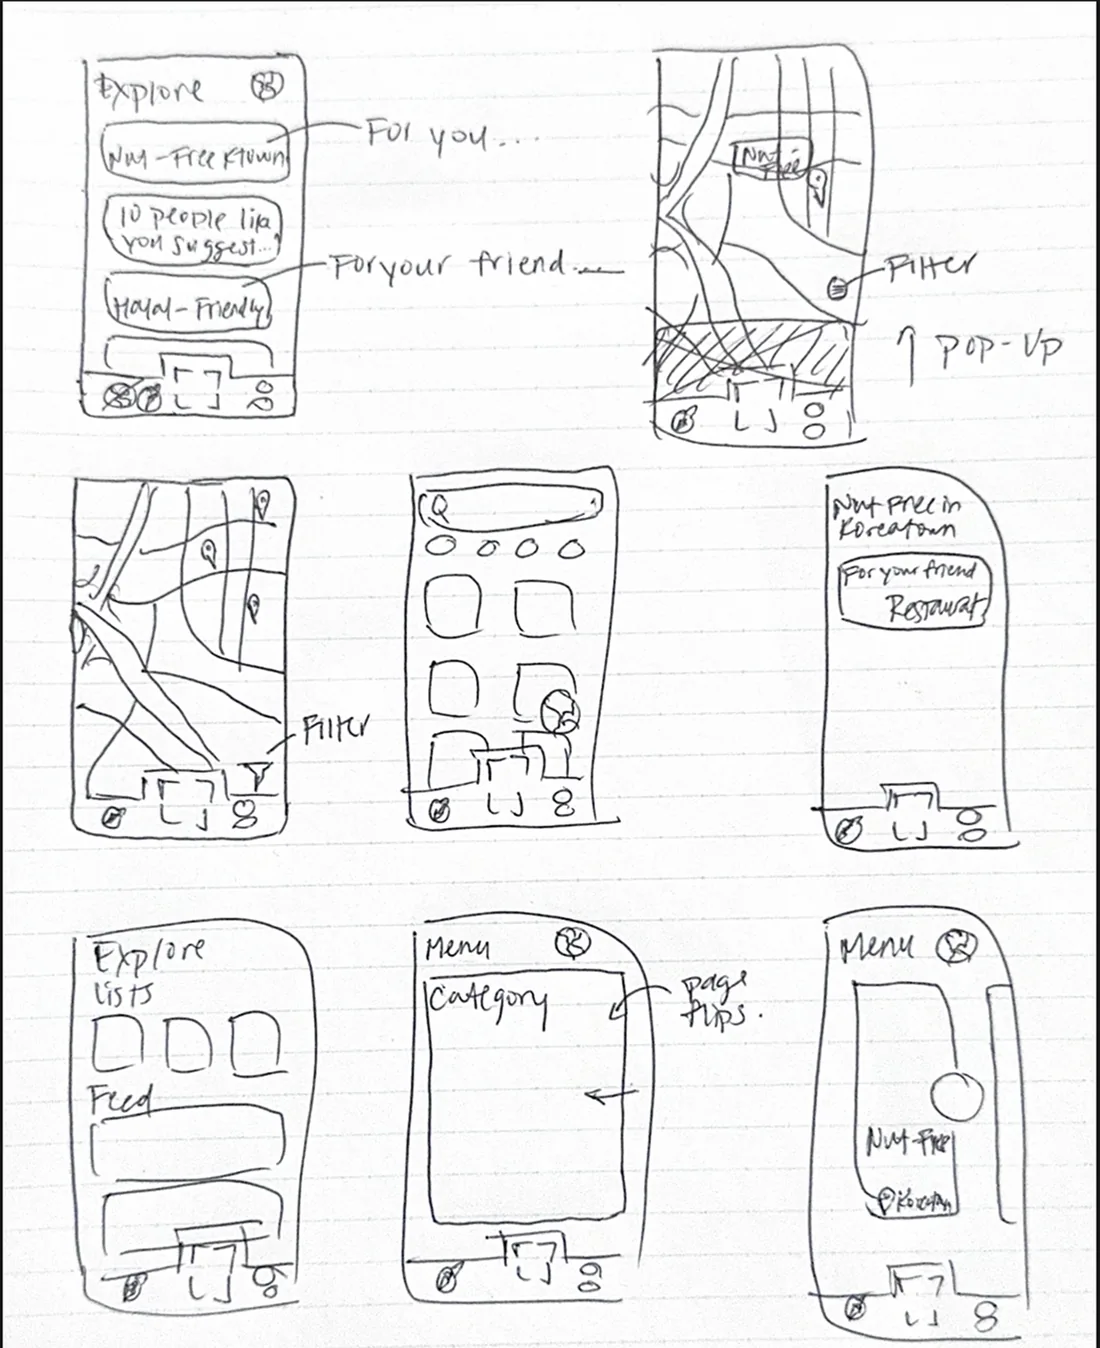 Explore
Nut-Free Ktown
For you...
10 people like
you suggest...
For your friend...
Halal-Friendly
Nut
Free
Filter
POP-UP
Filter
Nut Free in
Koreatown
For your friend
Restaurat
Explore
lists
Feed
Menu
Category
page
flips.
Menu
Nut-Free
Koreatown